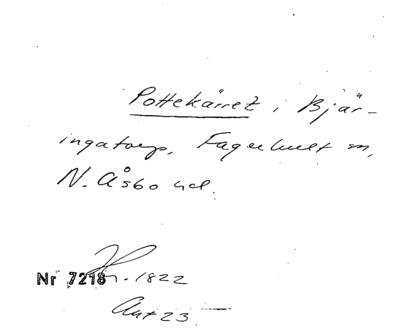 Pottekärret i Bjär-
ingatorp, Fagerhult sn,
N. Åsbo hd.
Nr 7218 . 1822
Ant 23